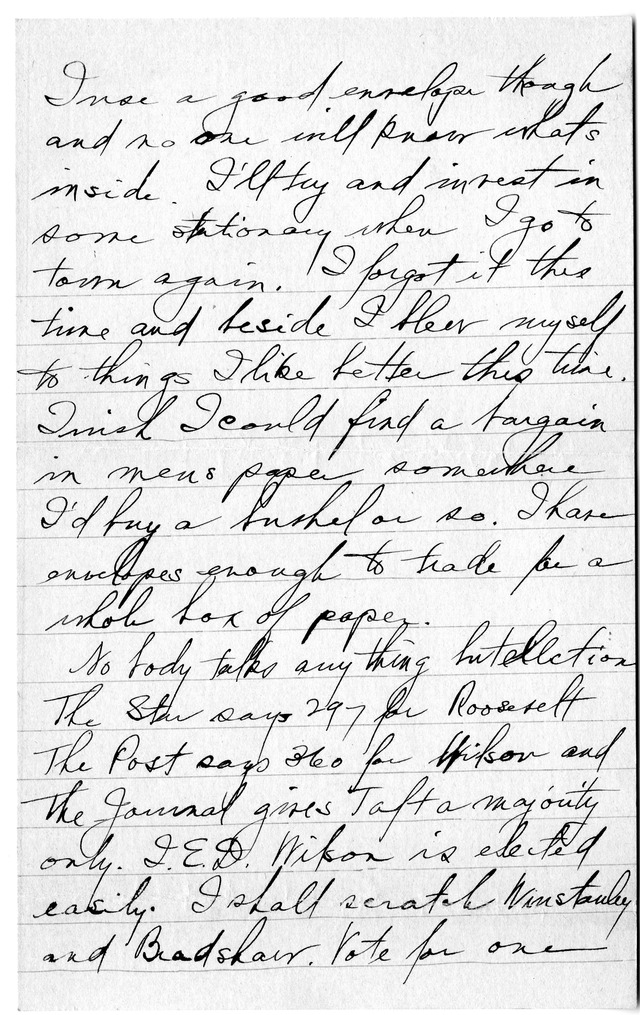 I use a good envelope though
and no one will know whats
inside. I'll try and invest in
some stationary when I go to
town again. I forgot it this
time and beside I blew myself
to things I like better this time.
I wish I could find a bargain
in mens paper somewhere
I'd buy a bushel or so. I have
envelopes enough to trade for a
whole box of paper.
No body talks anything but election
The Star says 297 for Roosevelt
The Post says 360 for Wilson and
the Journal gives Taft a majority
only. I.E.D. Wilson is elected
easily. I shall scratch Winstanley
and Bradshaw. Vote for one